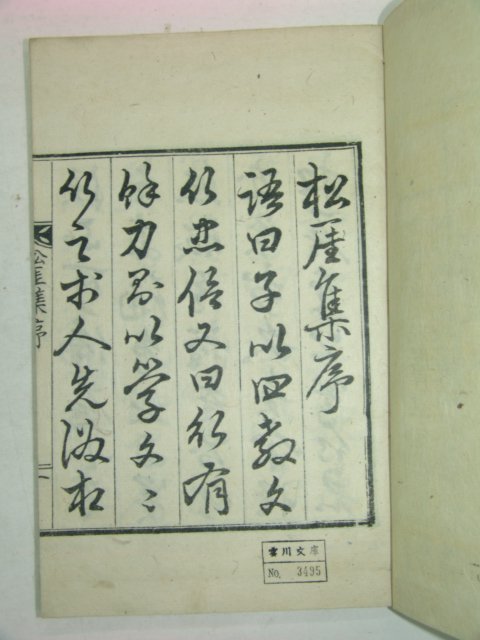 松厓集序
語曰子以四教文
行忠信又曰行有
餘力則以學文〻
行之於人先後本
松厓集序
一
雲川文庫
No. 3495